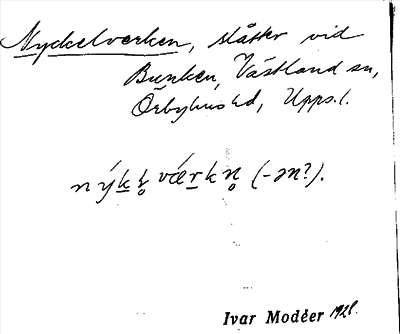 Nyckelverken, slåtter vid
Bunken, Västland sn,
Örbyhus hd, Upps. l.
nýkḷ værkn̥ (-ən?).
Ivar Modéer 1928.